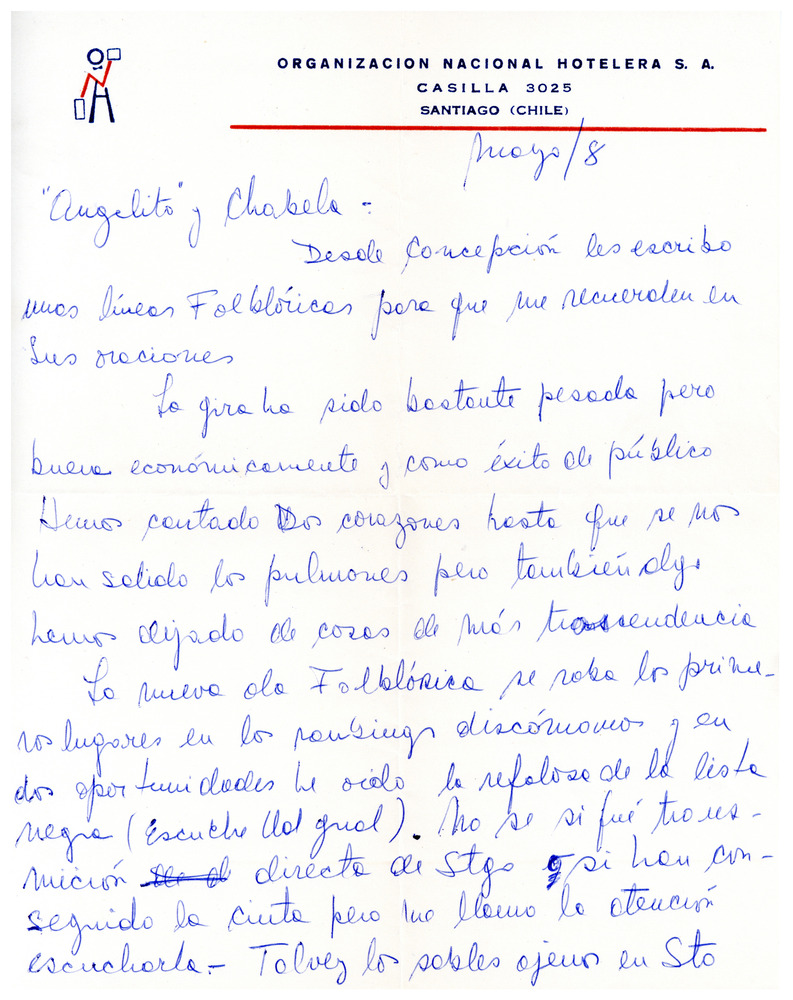 ORGANIZACION NACIONAL HOTELERA S. A.
CASILLA 3025
SANTIAGO (CHILE)
Mayo/8
"Angelito" y Chabela -
Desde Concepción les escribo
unas líneas Folklóricas para que me recuerden en
sus oraciones
La gira ha sido bastante pesada pero
buena económicamente y como éxito de público
Hemos cantado Dos corazones hasta que se nos
han salido los pulmones pero también algo
hemos dejado de cosas de más trascendencia
La nueva ola Folklórica se roba los prime-
ros lugares en los rankings discómanos y en
dos oportunidades he oido la refalosa de la lista
negra (Escuche Ud gnal). No se si fué trans-
mición directa de Stgo o si han con-
seguido la cinta pero me llamo la atención
escucharla.- Talvez los sables ajenos en Sto